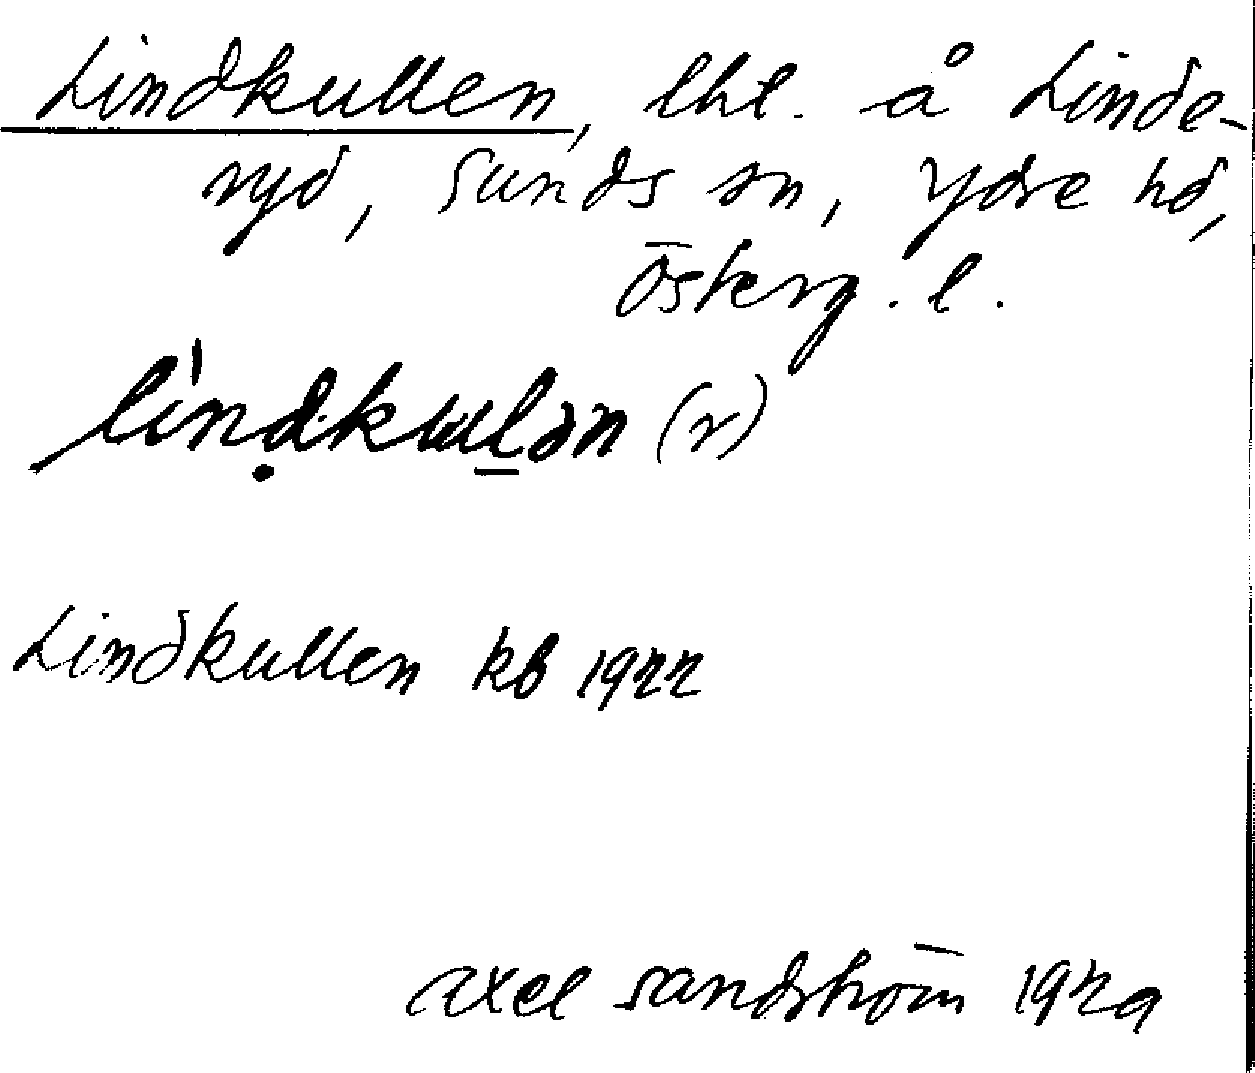 Lindkullen, lht. å Linde-
ryd, Sunds sn, Ydre hd,
Österg. l.
lìnḍkɯl̲ən (r)
Lindkullen kb 1922
Axel Sandström 1929